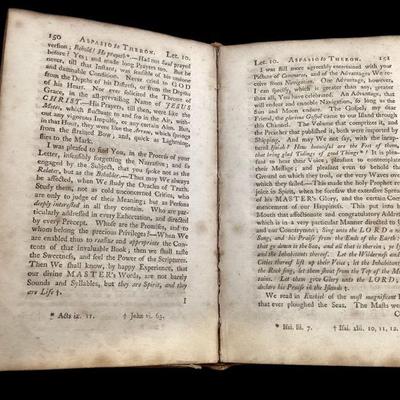 150 ASPASIO to THERON. Let. 10.
version; Behold! He prayeth*.—Had not Saul prayed
before? Yes; and made long Prayers too. But he
never, till that Instant, was sensible of his undone
and damnable Condition. Never cried to GOD
from the Depths of his Distress, or from the Depths
of his Heart. Now over solicited the Throne of
Grace, in the all-prevailing Name of JESUS
CHRIST.—His Prayers, till then, were like the
Mists, which fluctuate to and fro in the Air, with-
out any vigorous Impulse, or any certain Aim. But,
in that Hour, they were like the Arrow, which springs
from the strained Bow; and, quick as Lightening,
flies to the Mark.
I was pleased to find You, in the Process of your
Letter, insensibly forgetting the Narrative; and so
engaged by the Subject, that you spoke not as the
Relater, but as the Beholder.—Thus may We always
be affected, when We study the Oracles of Truth.
Study them, not as cold unconcerned Critics, who
are only to judge of their Meaning; but as Persons
deeply interested in all they contain. Who are par-
ticularly addressed in every Exhortation, and directed
by every Precept. Whose are the Promises, and to
whom belong the precious Privileges!—When We
are enabled thus to realize and appropriate the Con-
tents of that invaluable Book; then we shall taste
the Sweetness, and feel the Power of the Scriptures.
Then We shall know, by happy Experience, that
our divine MASTER's Words, are not barely
Sounds and Syllables, but they are Spirit, and they
are Life†.
I
* Acts ix. 11. † John vi. 63.
Let. 10. ASPASIO to THERON. 151
I was still more agreeably entertained with your
Picture of Commerce, and of the Advantages We re-
ceive from Navigation. One Advantage, however,
I can specify, which is greater than any, greater
than all, You have celebrated. An Advantage, that
will endear and ennoble Navigation, so long as the
Sun and Moon endure. The Gospel, my dear
Friend, the glorious Gospel came to our Island through
this Channel. The Volume that comprizes it, and
the Preacher that published it, both were imported by
Shipping. And may We not say, with the inrap-
tured Isaiah? How beautiful are the Feet of them,
that bring glad Tidings of good Things*! It is plea-
sant to hear their Voice; pleasant to contemplate
their Message; and pleasant even to behold the
Ground on which they trod, or the very Waves over
which they sailed.—This made the holy Prophet re-
joice in Spirit, when he foresaw the extended Spread
of his MASTER's Glory, and the certain Com-
mencement of our Happiness. This put into his
Mouth that affectionate and congratulatory Address,
which is in a very particular Manner directed to Us
and our Countrymen; Sing unto the LORD a new
Song, and his Praise from the Ends of the Earth; Ye
that go down to the Sea, and all that is therein; the Isles
and the Inhabitants thereof. Let the Wilderness and the
Cities thereof lift up their Voice; let the Inhabitants of
the Rock sing, let them shout from the Top of the Moun-
tains. Let them give Glory unto the LORD, and
declare his Praise in the Islands†.
We read in Ezekiel of the most magnificent
that ever ploughed the Seas. The Masts were
* Isai. lii. 7. † Isai. xlii. 10, 11, 12.